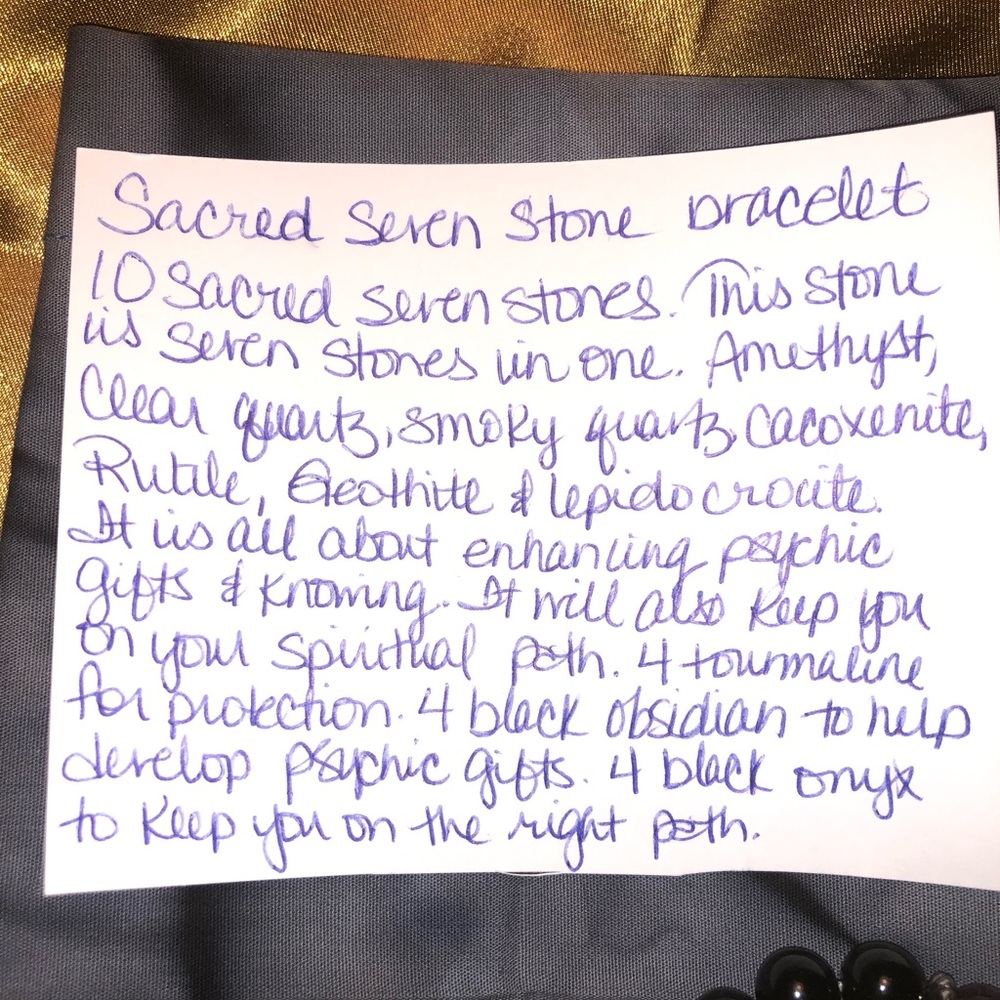 Sacred Seven Stone bracelet
10 Sacred Seven stones. This stone
is seven stones in one. Amethyst,
Clear quartz, smoky quartz, cacoxenite,
Rutile, Geothite & lepidocrocite.
It is all about enhancing psychic
gifts & knowing. It will also keep you
on your spiritual path. 4 tourmaline
for protection. 4 black obsidian to help
develop psychic gifts. 4 black onyx
to keep you on the right path.